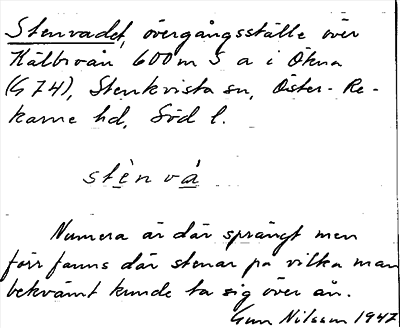 Stenvadet, övergångsställe över
Hälbyån 600 m S a i Ökna
(G 74), Stenkvista sn, Öster-Re-
karne hd, Söd l.
stènvá
Numera är där sprängt men
förr fanns där stenar på vilka man
bekvämt kunde ta sig över ån.
Gun Nilsson 1947